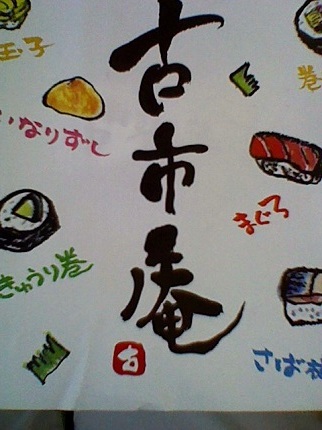 古市庵
玉子
いなりずし
きゅうり巻
巻
まぐろ
さば
古